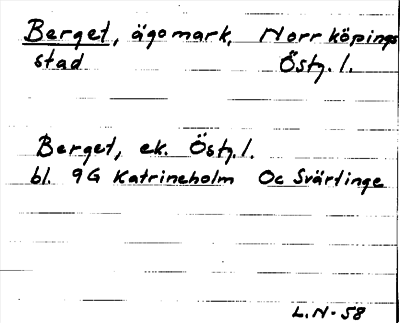 Berget, ägomark, Norrköpings
stad Östg. l.
Berget, ek. Östg. l.
bl. 9G Katrineholm Oc Svärtinge
L.N-58